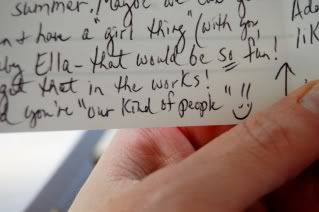 summer. Maybe we can g
n + have a "girl thing" (with you
by Ella - that would be so fun!
get that in the works!
d you're "our kind of people"!!
Ade
lik